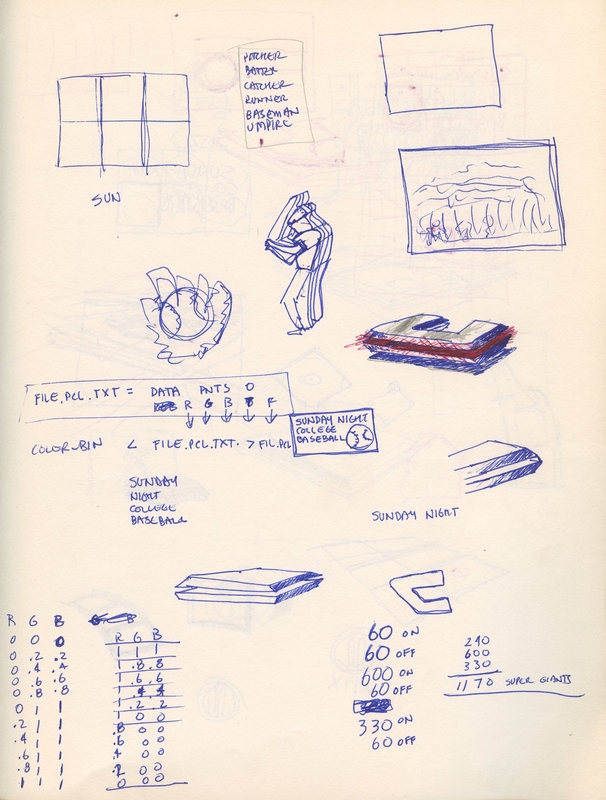 PITCHER
BATTER
CATCHER
RUNNER
BASEMAN
UMPIRE
SUN
FILE.PCL.TXT = DATA PNTS 0
R G B F
COLOR.BIN < FILE.PCL.TXT. > FIL.PCL
SUNDAY NIGHT
COLLEGE
BASEBALL
SUNDAY
NIGHT
COLLEGE
BASEBALL
SUNDAY NIGHT
R G B
0 0 0
0 .2 .2
0 .4 .4
0 .6 .6
0 .8 .8
0 1 1
.2 1 1
.4 1 1
.6 1 1
.8 1 1
1 1 1
R G B
1 1 1
1 .8 .8
1 .6 .6
1 .4 .4
1 .2 .2
1 0 0
.8 0 0
.6 0 0
.4 0 0
.2 0 0
0 0 0
60 ON
60 OFF
600 ON
60 OFF
330 ON
60 OFF
240
600
330
1170 SUPER GIANTS